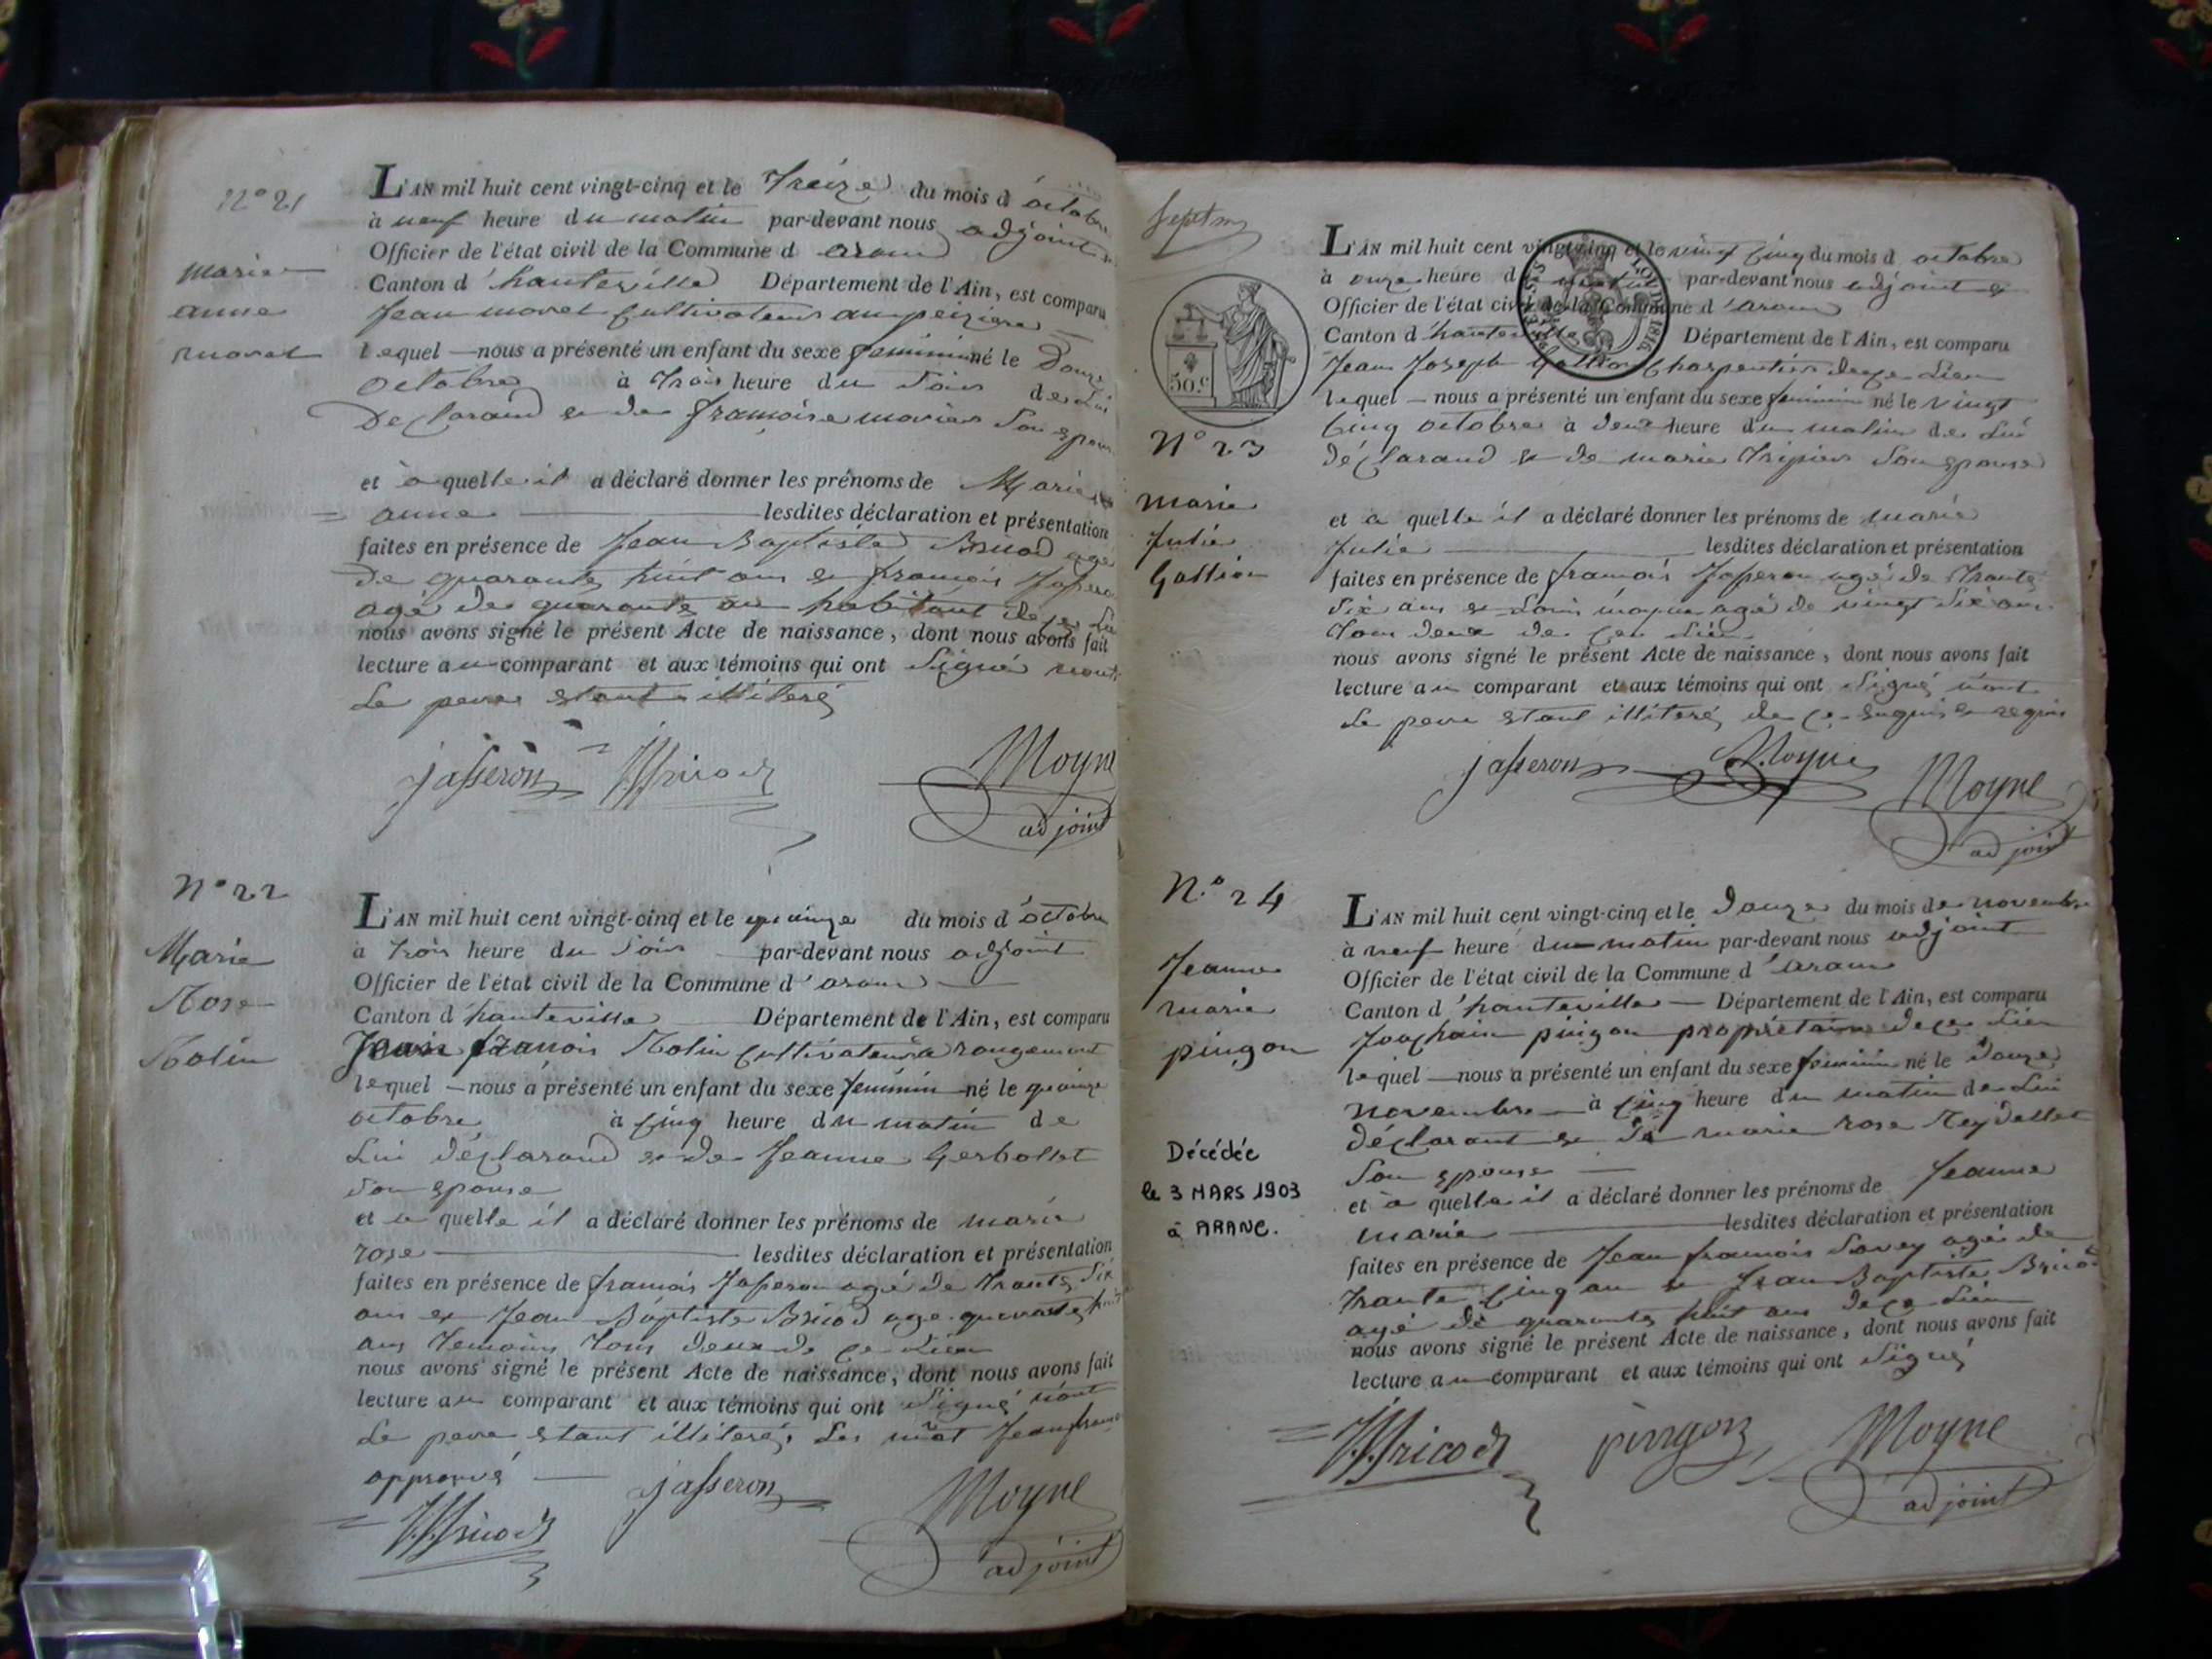 N° 21
Marie
anne
moret
L'AN mil huit cent vingt-cinq et le Treize du mois d'octobre
à neuf heure du matin par-devant nous adjoint
Officier de l'état civil de la Commune d aranc
Canton d'hauteville Département de l'Ain, est comparu
Jean moret Cultivateur
lequel nous a présenté un enfant du sexe feminin né le Douze
octobre à Trois heure du Soir de Lui
Declarand et de françoise Son epouse
et a quelle il a déclaré donner les prénoms de Marie
anne lesdites déclaration et présentation
faites en présence de Jean Baptiste Bricod agé
De quarante huit ans et françois Jasseron
agé de quarante an habitant de ce Lieu
nous avons signé le présent Acte de naissance, dont nous avons fait
lecture au comparant et aux témoins qui ont Signé
Le pere etant illiteré
jasseron Bricod Moyne
adjoint
N° 22
Marie
Rose
L'AN mil huit cent vingt-cinq et le quinze du mois d'octobre
à trois heure du Soir par-devant nous adjoint
Officier de l'état civil de la Commune d'aranc
Canton d'hauteville Département de l'Ain, est comparu
Jean françois Cultivateur a rougemont
lequel nous a présenté un enfant du sexe feminin né le quinze
octobre à Cinq heure du matin de
Lui déclarand et de Jeanne Gerbollet
Son epouse
et a quelle il a déclaré donner les prénoms de marie
rose lesdites déclaration et présentation
faites en présence de françois Jasseron agé de Trante Six
ans et Jean Baptiste Bricod age quarante huit
ans Temoins Tous deux de ce Lieu
nous avons signé le présent Acte de naissance, dont nous avons fait
lecture au comparant et aux témoins qui ont Signé n'ont
Le pere etant illiteré, Les mot Jean françois
approuvé
Bricod jasseron Moyne
adjoint
Sept
50 c
N° 23
marie
Julie
Gallion
L'AN mil huit cent vingt-cinq et le vingt Cinq du mois d octobre
à onze heure du matin par-devant nous adjoint
Officier de l'état civil de la Commune d'aranc
Canton d'hauteville Département de l'Ain, est comparu
Jean Joseph Gallion Charpentier de ce Lieu
lequel nous a présenté un enfant du sexe feminin né le vingt
Cinq octobre à deux heure du matin de Lui
déclarand et de marie Son epouse
et a quelle il a déclaré donner les prénoms de marie
Julie lesdites déclaration et présentation
faites en présence de françois Jasseron agé de Trante
Six ans et Louis moyne agé de vingt Six ans
Tous deux de ce Lieu
nous avons signé le présent Acte de naissance, dont nous avons fait
lecture au comparant et aux témoins qui ont Signé n'ont
Le pere etant illiteré de ce enquis et requis
jasseron Moyne Moyne
adjoint
N.° 24
Jeanne
marie
pingon
Décédée
le 3 MARS 1903
à ARANC.
L'AN mil huit cent vingt-cinq et le Douze du mois de novembre
à neuf heure du matin par-devant nous adjoint
Officier de l'état civil de la Commune d'aranc
Canton d'hauteville Département de l'Ain, est comparu
Joachain pingon propriétaire de ce Lieu
lequel nous a présenté un enfant du sexe feminin né le Douze
novembre à Cinq heure du matin de Lui
déclarant et de marie rose Reydellet
Son epouse
et a quelle il a déclaré donner les prénoms de Jeanne
marie lesdites déclaration et présentation
faites en présence de Jean françois Savey agé de
Trante Cinq an et Jean Baptiste Bricod
agé de quarante huit ans de ce Lieu
nous avons signé le présent Acte de naissance, dont nous avons fait
lecture au comparant et aux témoins qui ont Signé
Bricod pingon Moyne
adjoint